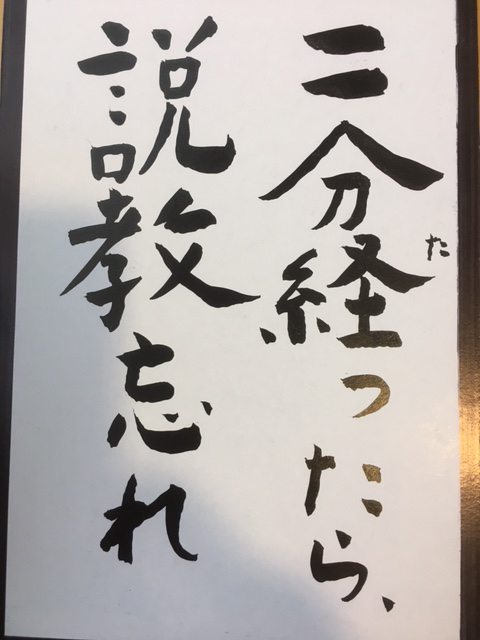 二分経ったら、
た
説教忘れ